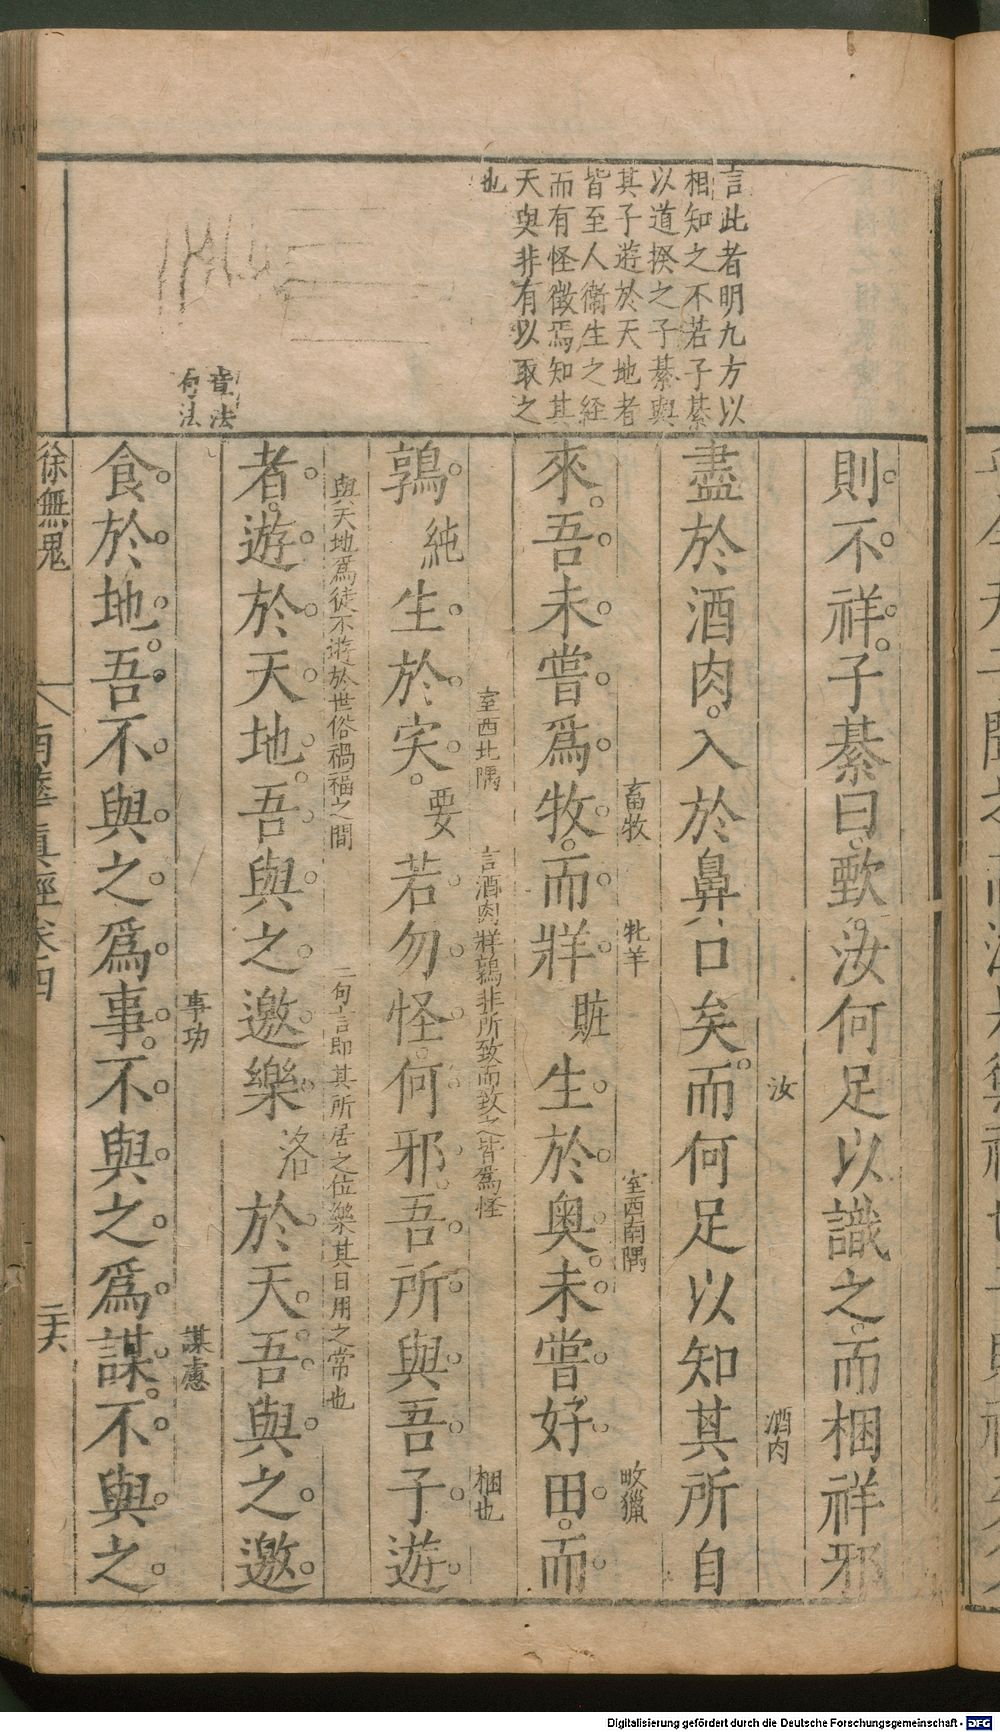 言此者明九方以
相知之不若子綦
以道揆之子綦與
其子遊於天地者
皆至人衞生之経
而有怪徵焉知其
天與非有以取之
也
章法
句法
則不祥子綦曰歅汝何足以識之而梱祥邪
汝
酒肉
盡於酒肉入於鼻口矣而何足以知其所自
畜牧
牝羊
室西南隅
畋獵
來吾未嘗爲牧而牂賍生於奧未嘗好田而
室西北隅
言酒肉牂鶉非所致而致之皆爲怪
梱也
鶉純生於宎要若勿怪何邪吾所與吾子遊
與天地爲徒不遊於世俗禍福之間
二句言即其所居之位樂其日用之常也
者遊於天地吾與之邀樂洛於天吾與之邀
事功
謀慮
食於地吾不與之爲事不與之爲謀不與之
徐無鬼
南華真經卷四
二六
Digitalisierung gefördert durch die Deutsche Forschungsgemeinschaft - DFG